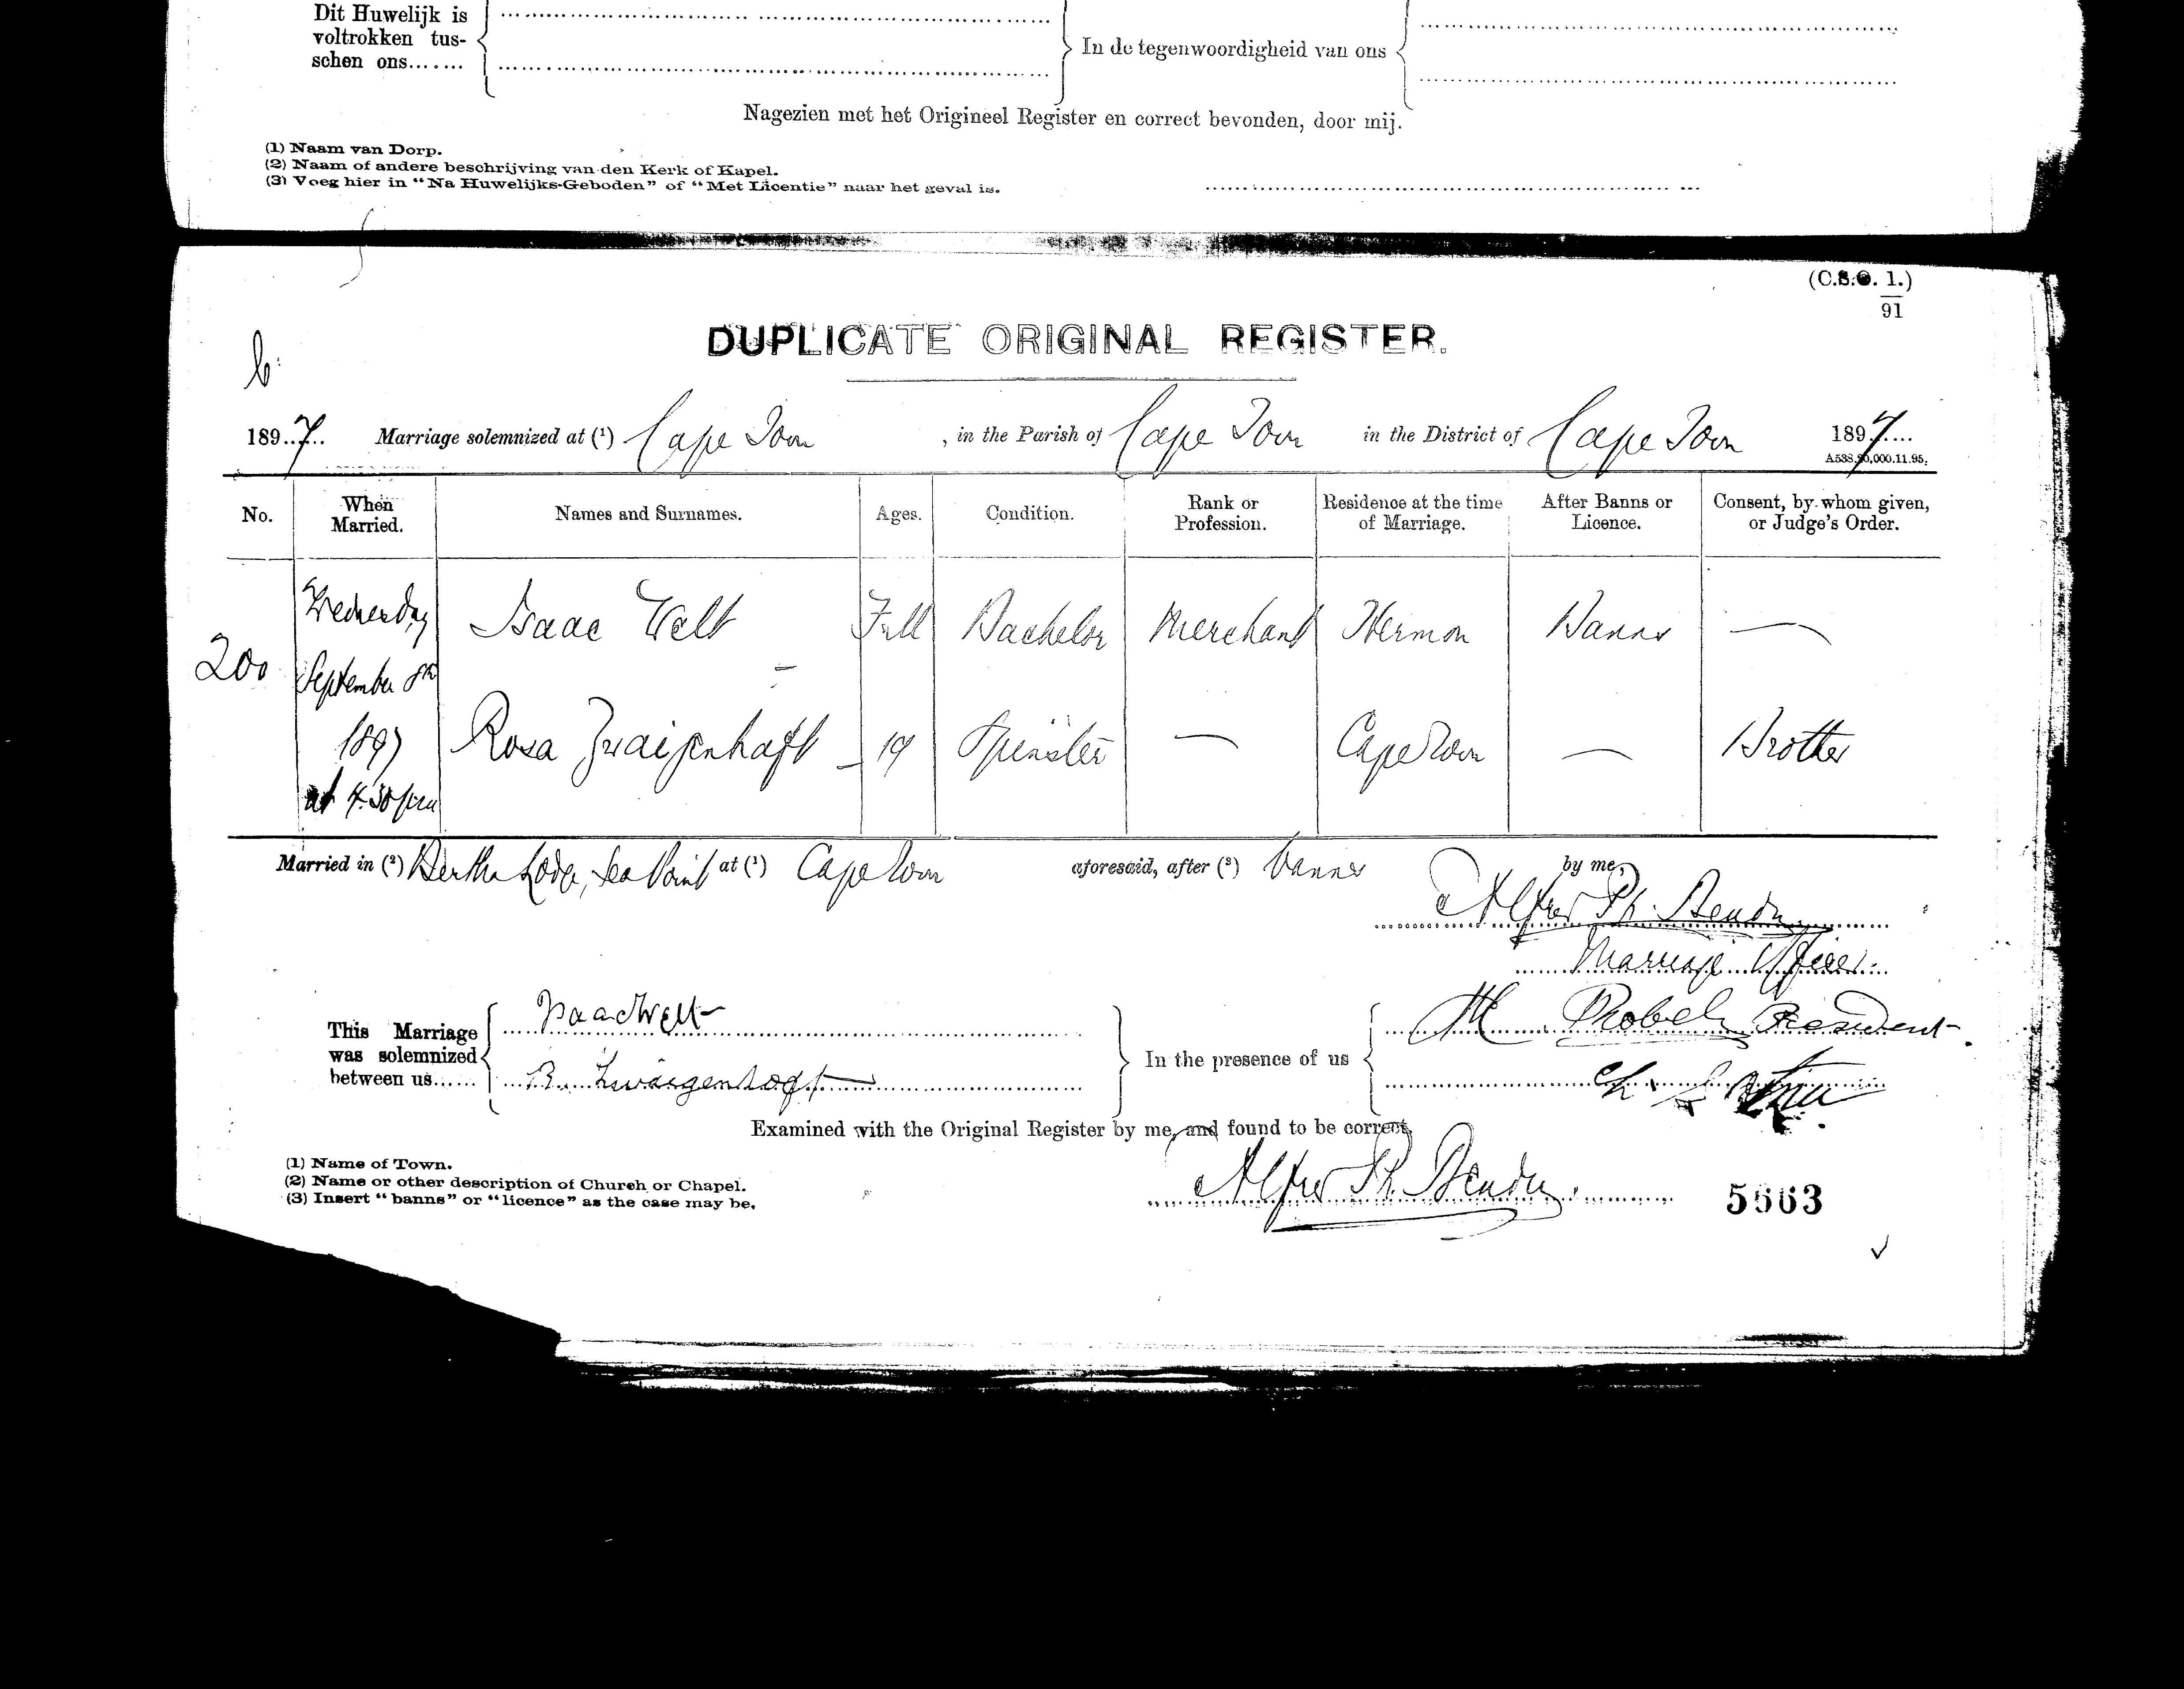 Dit Huwelijk is
voltrokken tus-
schen ons.......
In de tegenwoordigheid van ons
Nagezien met het Origineel Register en correct bevonden, door mij.
(1) Naam van Dorp.
(2) Naam of andere beschrijving van den Kerk of Kapel.
(3) Voeg hier in “Na Huwelijks-Geboden” of “Met Licentie” naar het geval is.
(C.S.O. 1.)
91
DUPLICATE ORIGINAL REGISTER.
1897 Marriage solemnized at (1) Cape Town, in the Parish of Cape Town in the District of Cape Town 1897
A538.20,000.11.95.
No. When Married. Names and Surnames. Ages. Condition. Rank or Profession. Residence at the time of Marriage. After Banns or Licence. Consent, by whom given, or Judge's Order.
200 Wednesday September 8th 1897 at 4.30 pm
Isaac Welt Full Bachelor Merchant Hermon Banns —
Rosa Zwaigenhaft 19 Spinster — Cape Town — Brother
Married in (2) Bertha Lodge, Sea Point at (1) Cape Town aforesaid, after (3) banns by me,
Alfred Ph. Bender
Marriage Officer.
This Marriage
was solemnized
between us......
Isaac Welt
R. Zwaigenhaft
In the presence of us
President
Examined with the Original Register by me, and found to be correct,
Alfred Ph. Bender.
(1) Name of Town.
(2) Name or other description of Church or Chapel.
(3) Insert “banns” or “licence” as the case may be.
5563